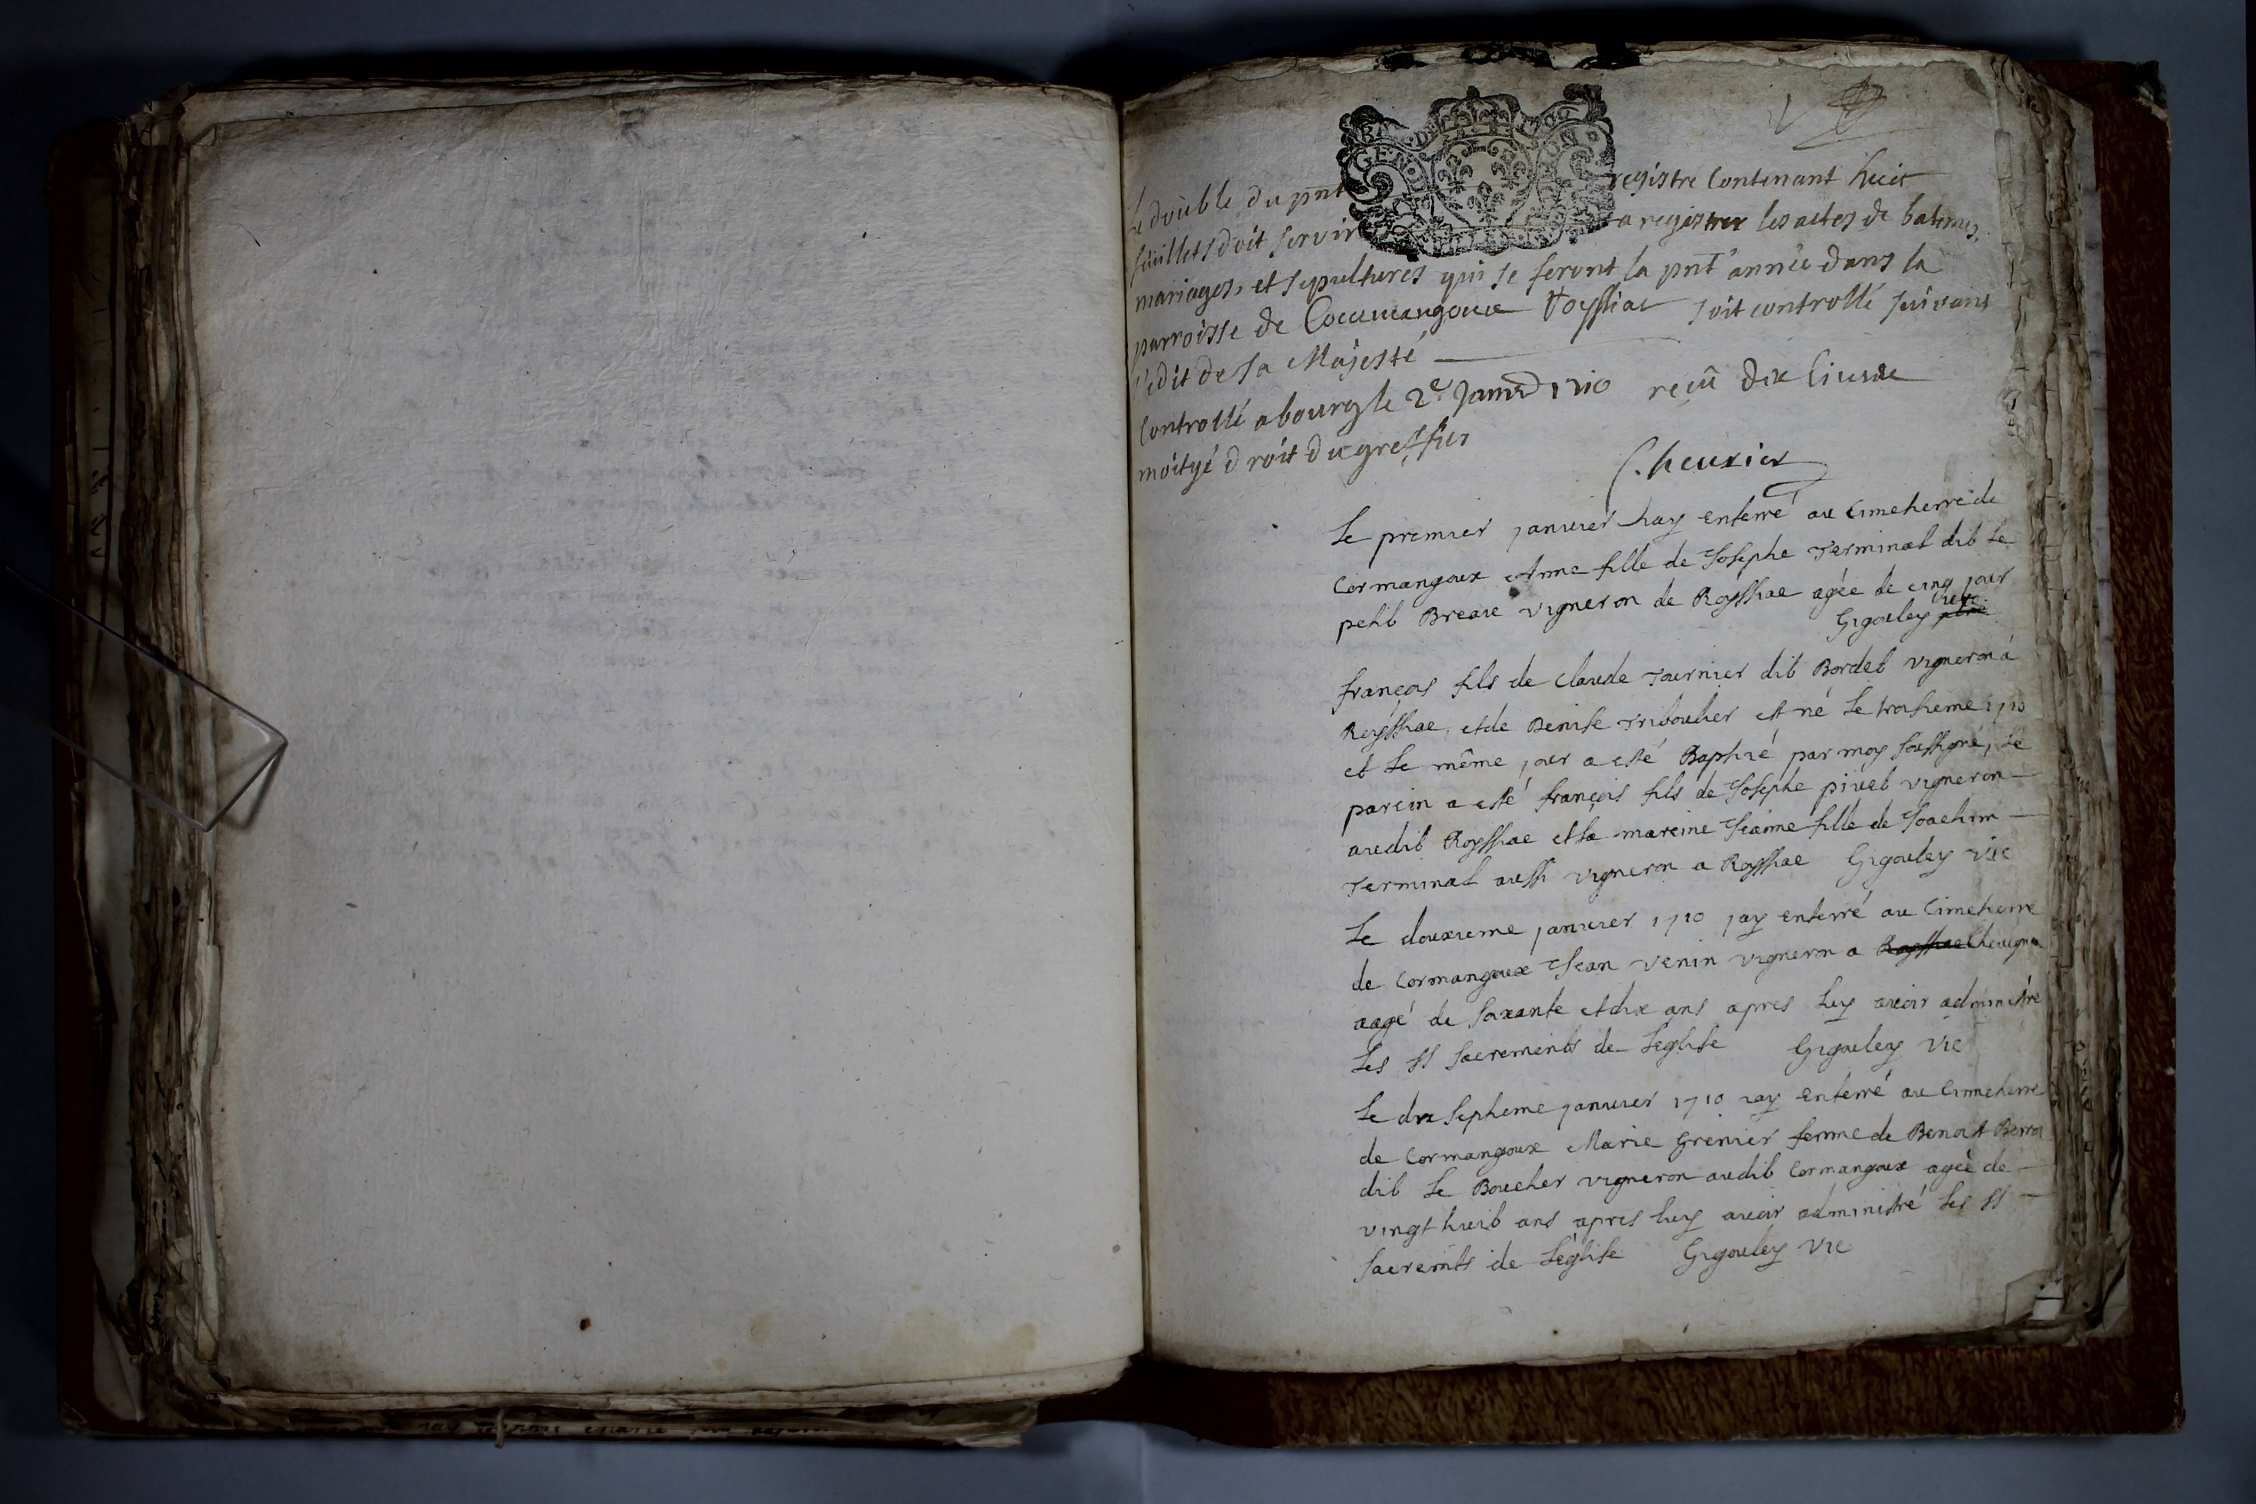 GEN
le double du pnt registre Contenant huit
feuillets doit servir a registrer les actes de batemes,
mariages, et sepultures qui se feront la pnt année dans la
parroisse de Cormangoux Roissiat soit controllé suivant
l'edit de sa Majesté
Controllé a bourg le 2e Janvr 1710 reçû dix livres
moityé droit du greffier
Cheurier
Le premier janvier hay enterré au Cimetierre de
Cormangoux Anne fille de Josephe Terminal dit Le
petit Breau vigneron de Royssiac agée de cinq jour
Gigouley vic
françois fils de Claude Tournier dit Bordet vigneron á
Royssiac, et de Denise Triboulier est né Le troisieme 1710
et Le même jour a esté Baptisé par moy soussigné, Le
parein a esté françois fils de Josephe pivet vigneron
audit Royssiac et La mareine Jeanne fille de Joachim
Terminal aussi vigneron a Royssiac Gigouley vic
Le douxieme janvier 1710 jay enterré au Cimetierre
de Cormangoux Jean venin vigneron a Royssiac Chevignia
aagé de soixante et dix ans apres Luy avoir administré
Les SS Sacrements de Léglise Gigouley vic
Le dix septieme janvier 1710 jay enterré au Cimetierre
de Cormangoux Marie Grenier femme de Benoist
dit Le Boucher vigneron audit Cormangoux agée de
vingt huit ans apres Luy avoir administré Les SS
Sacremts de Léglise Gigouley vic